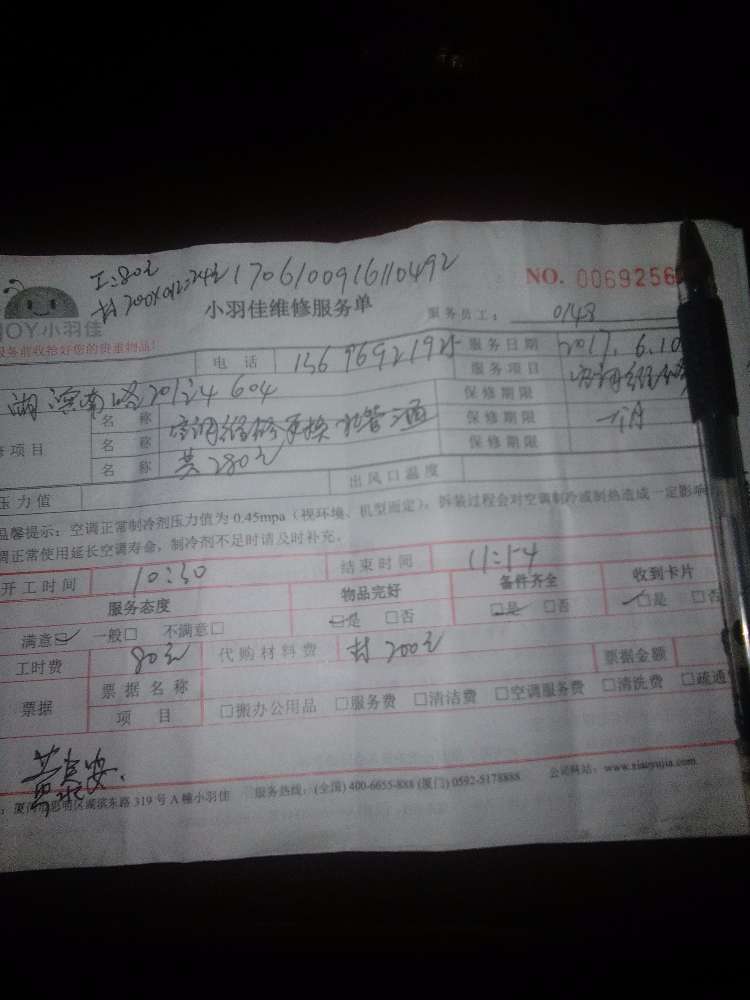 工:80元
材200×0.12=24元 170610091610492
NO. 0069256
JOY小羽佳
小羽佳维修服务单
服务员工: 0148
服务前收拾好您的贵重物品!
电 话
服务日期 2017.6.10
服务项目 空调维修
湖滨南路201之4 604
保修期限
名 称 空调维修更换 铜管
保修期限 一个月
项目
名 称
保修期限
名 称 共280元
压力值
出风口温度
温馨提示:空调正常制冷剂压力值为 0.45mpa(视环境、机型而定),拆装过程会对空调制冷或制热造成一定影响
调正常使用延长空调寿命,制冷剂不足时请及时补充。
开工时间 10:30 结束时间 11:54
服务态度 物品完好 备件齐全 收到卡片
满意☑ 一般□ 不满意□ ☑是 □否 ☑是 □否 ☑是 □否
工时费 80元 代购材料费 材200元 票据金额
票据 票据名称
项 目 □搬办公用品 □服务费 □清洁费 □空调服务费 □清洗费 □疏通
厦门市思明区湖滨东路 319 号 A 幢小羽佳 服务热线:(全国) 400-6655-888 (厦门) 0592-5178888 公司网站:www.xiaoyujia.com